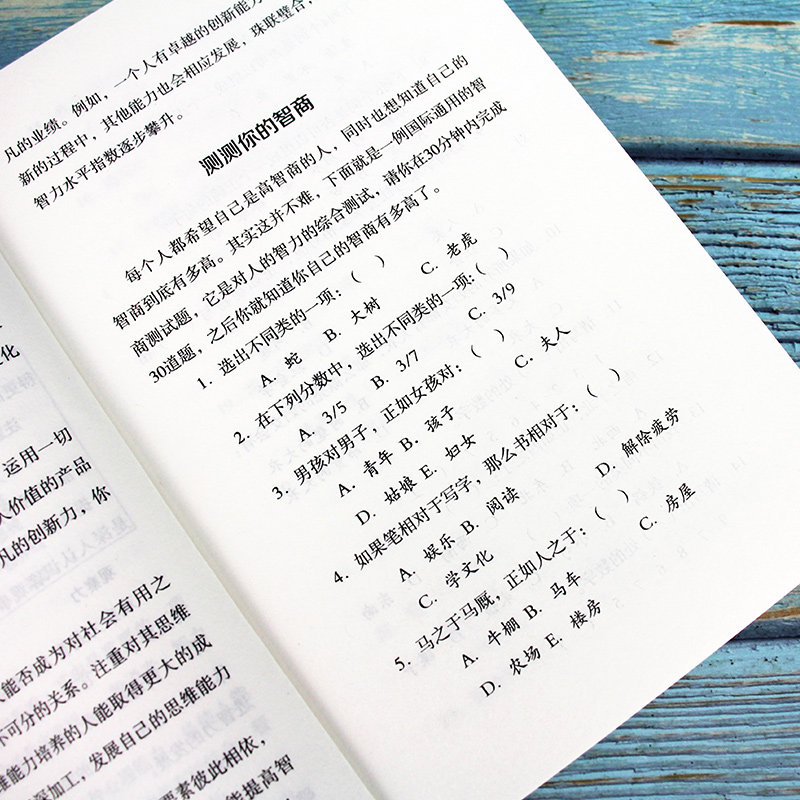 运用一切
人价值的产品
凡的创新力，你
能否成为对社会有用之
不可分的关系。注重对其思维
维能力培养的人能取得更大的成
深加工，发展自己的思维能力
要素彼此相依，
能提高智
凡的业绩。例如，一个人有卓越的创新能力
新的过程中，其他能力也会相应发展，珠联璧合，
智力水平指数逐步攀升。
测测你的智商
每个人都希望自己是高智商的人，同时也想知道自己的
智商到底有多高。其实这并不难，下面就是一例国际通用的智
商测试题，它是对人的智力的综合测试，请你在30分钟内完成
30道题，之后你就知道你自己的智商有多高了。
1. 选出不同类的一项：（ ）
A. 蛇 B. 大树 C. 老虎
2. 在下列分数中，选出不同类的一项:（ ）
A. 3/5 B. 3/7 C. 3/9
3. 男孩对男子，正如女孩对：（ ）
A. 青年 B. 孩子 C. 夫人
D. 姑娘 E. 妇女
4. 如果笔相对于写字，那么书相对于：（ ）
A. 娱乐 B. 阅读
C. 学文化 D. 解除疲劳
5. 马之于马厩，正如人之于：（ ）
A. 牛棚 B. 马车 C. 房屋
D. 农场 E. 楼房